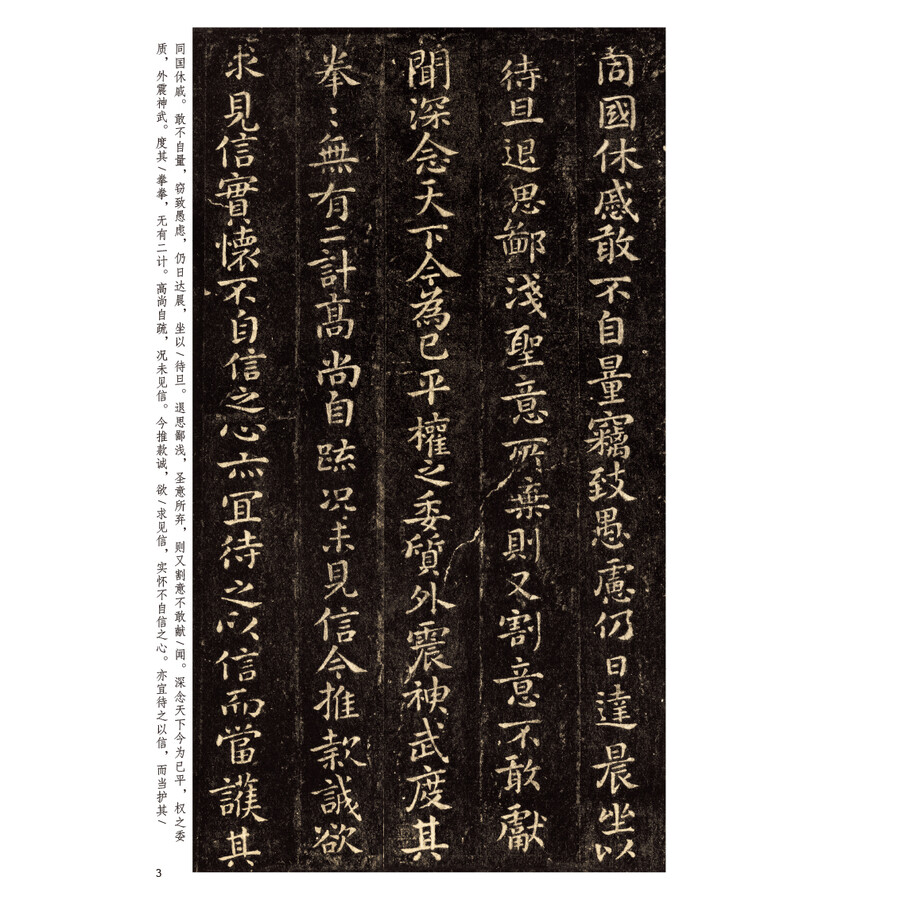 同國休戚敢不自量竊致愚慮仍日達晨坐以
待旦退思鄙淺聖意所棄則又割意不敢獻
聞深念天下今為已平權之委質外震神武度其
拳〻無有二計高尚自疏況未見信今推款誠欲
求見信實懷不自信之心亦宜待之以信而當護其
同国休戚。敢不自量，窃致愚虑，仍日达晨，坐以/待旦。退思鄙浅，圣意所弃，则又割意不敢献/闻。深念天下今为已平，权之委
质，外震神武。度其/拳拳，无有二计。高尚自疏，况未见信。今推款诚，欲/求见信，实怀不自信之心。亦宜待之以信，而当护其/
3